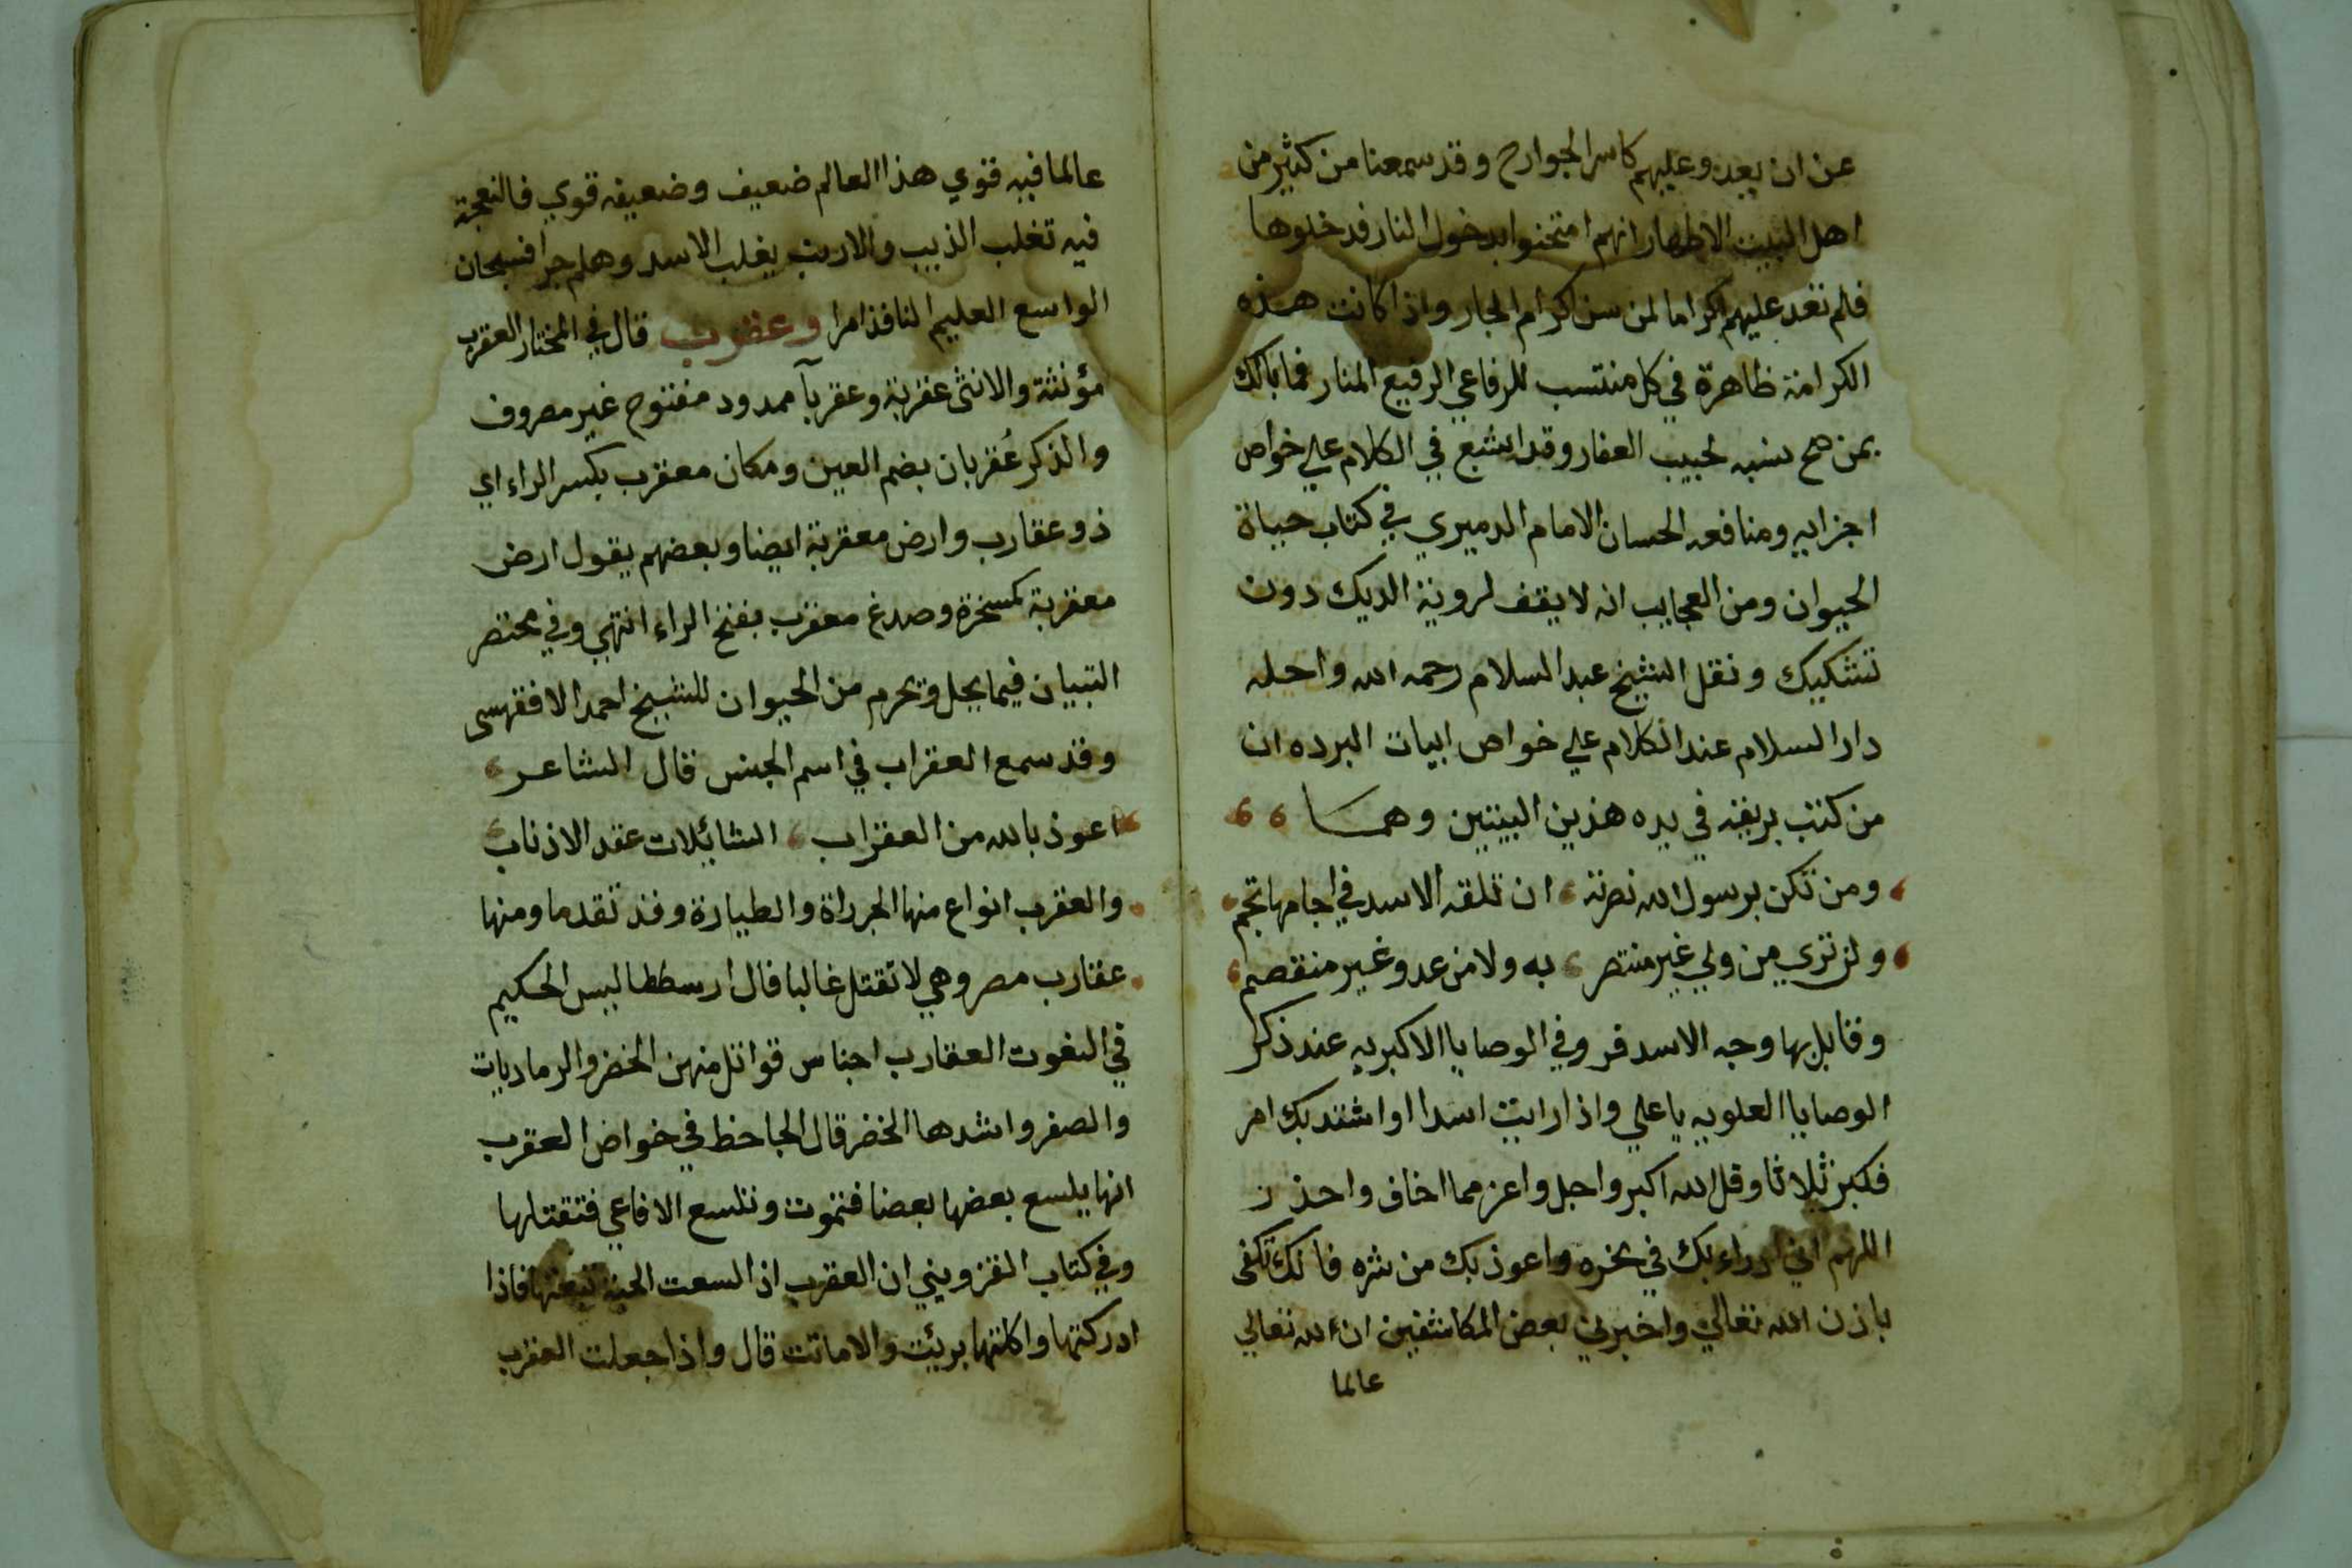 عن ان يعدو عليهم كاسر الجوارح وقد سمعنا من كثير من
اهل البيت الاطهار انهم امتحنوا بدخول النار فدخلوها
فلم تعد عليهم اكراما لمن سن اكرام الجار واذا كانت هذه
الكرامة ظاهرة في كل منتسب للرفاعي الرفيع المنار فما بالك
بمن صح نسبه لحبيب الغفار وقد اشبع في الكلام علي خواص
اجزايه ومنافعه الحسان الامام الدميري في كتاب حياة
الحيوان ومن العجايب انه لا يقف لروية الديك دون
تشكيك ونقل الشيخ عبد السلام رحمه الله واحله
دار السلام عند الكلام علي خواص ابيات البرده ان
من كتب بريقه في يده هذين البيتين وهما
ومن تكن برسول الله نصرته ، ان تلقه الاسد في اجامها تجم
ولن تري من ولي غير منتصر ، به ولا من عدو غير منقصم
وقابل بها وجه الاسد فر وفي الوصايا الاكبريه عند ذكر
الوصايا العلويه يا علي واذا رايت اسدا او اشتد بك امر
فكبر ثلاثا وقل الله اكبر واجل واعز مما اخاف واحذر
اللهم اني ادراء بك في نحره واعوذ بك من شره فانك تكفى
باذن الله تعالي واخبرني بعض المكاشفين ان الله تعالي
عالما
عالما فيه قوي هذا العالم ضعيف وضعيفه قوي فالنعجة
فيه تغلب الذيب والارنب يغلب الاسد وهلم جرا فسبحان
الواسع العليم النافذ امرا وعقرب قال في المختار العقرب
مؤنثة والانثى عقربة وعقربآ ممدود مفتوح غير مصروف
والذكر عُقربان بضم العين ومكان معقرب بكسر الراء اي
ذو عقارب وارض معقربة ايضا وبعضهم يقول ارض
معقربة كمسخرة وصدغ معقرب بفتح الراء انتهي وفي مختصر
التبيان فيما يحل ويحرم من الحيوان للشيخ احمد الاقفهسى
وقد سمع العقراب في اسم الجنس قال الشاعر
اعوذ بالله من العقراب ، الشائلات عقد الاذناب
والعقرب انواع منها الجرراة والطيارة وقد تقدما ومنها
عقارب مصر وهي لا تقتل غالبا قال ارسططاليس الحكيم
في النعوت العقارب اجناس قواتل منهن الخضر والرماديات
والصفر واشدها الخضر قال الجاحظ في خواص العقرب
انها يلسع بعضها بعضا فتموت وتلسع الافاعي فتقتلها
وفي كتاب القزويني ان العقرب اذا لسعت الحية تبعتها فاذا
ادركتها واكلتها بريئت والا ماتت قال واذا جعلت العقرب